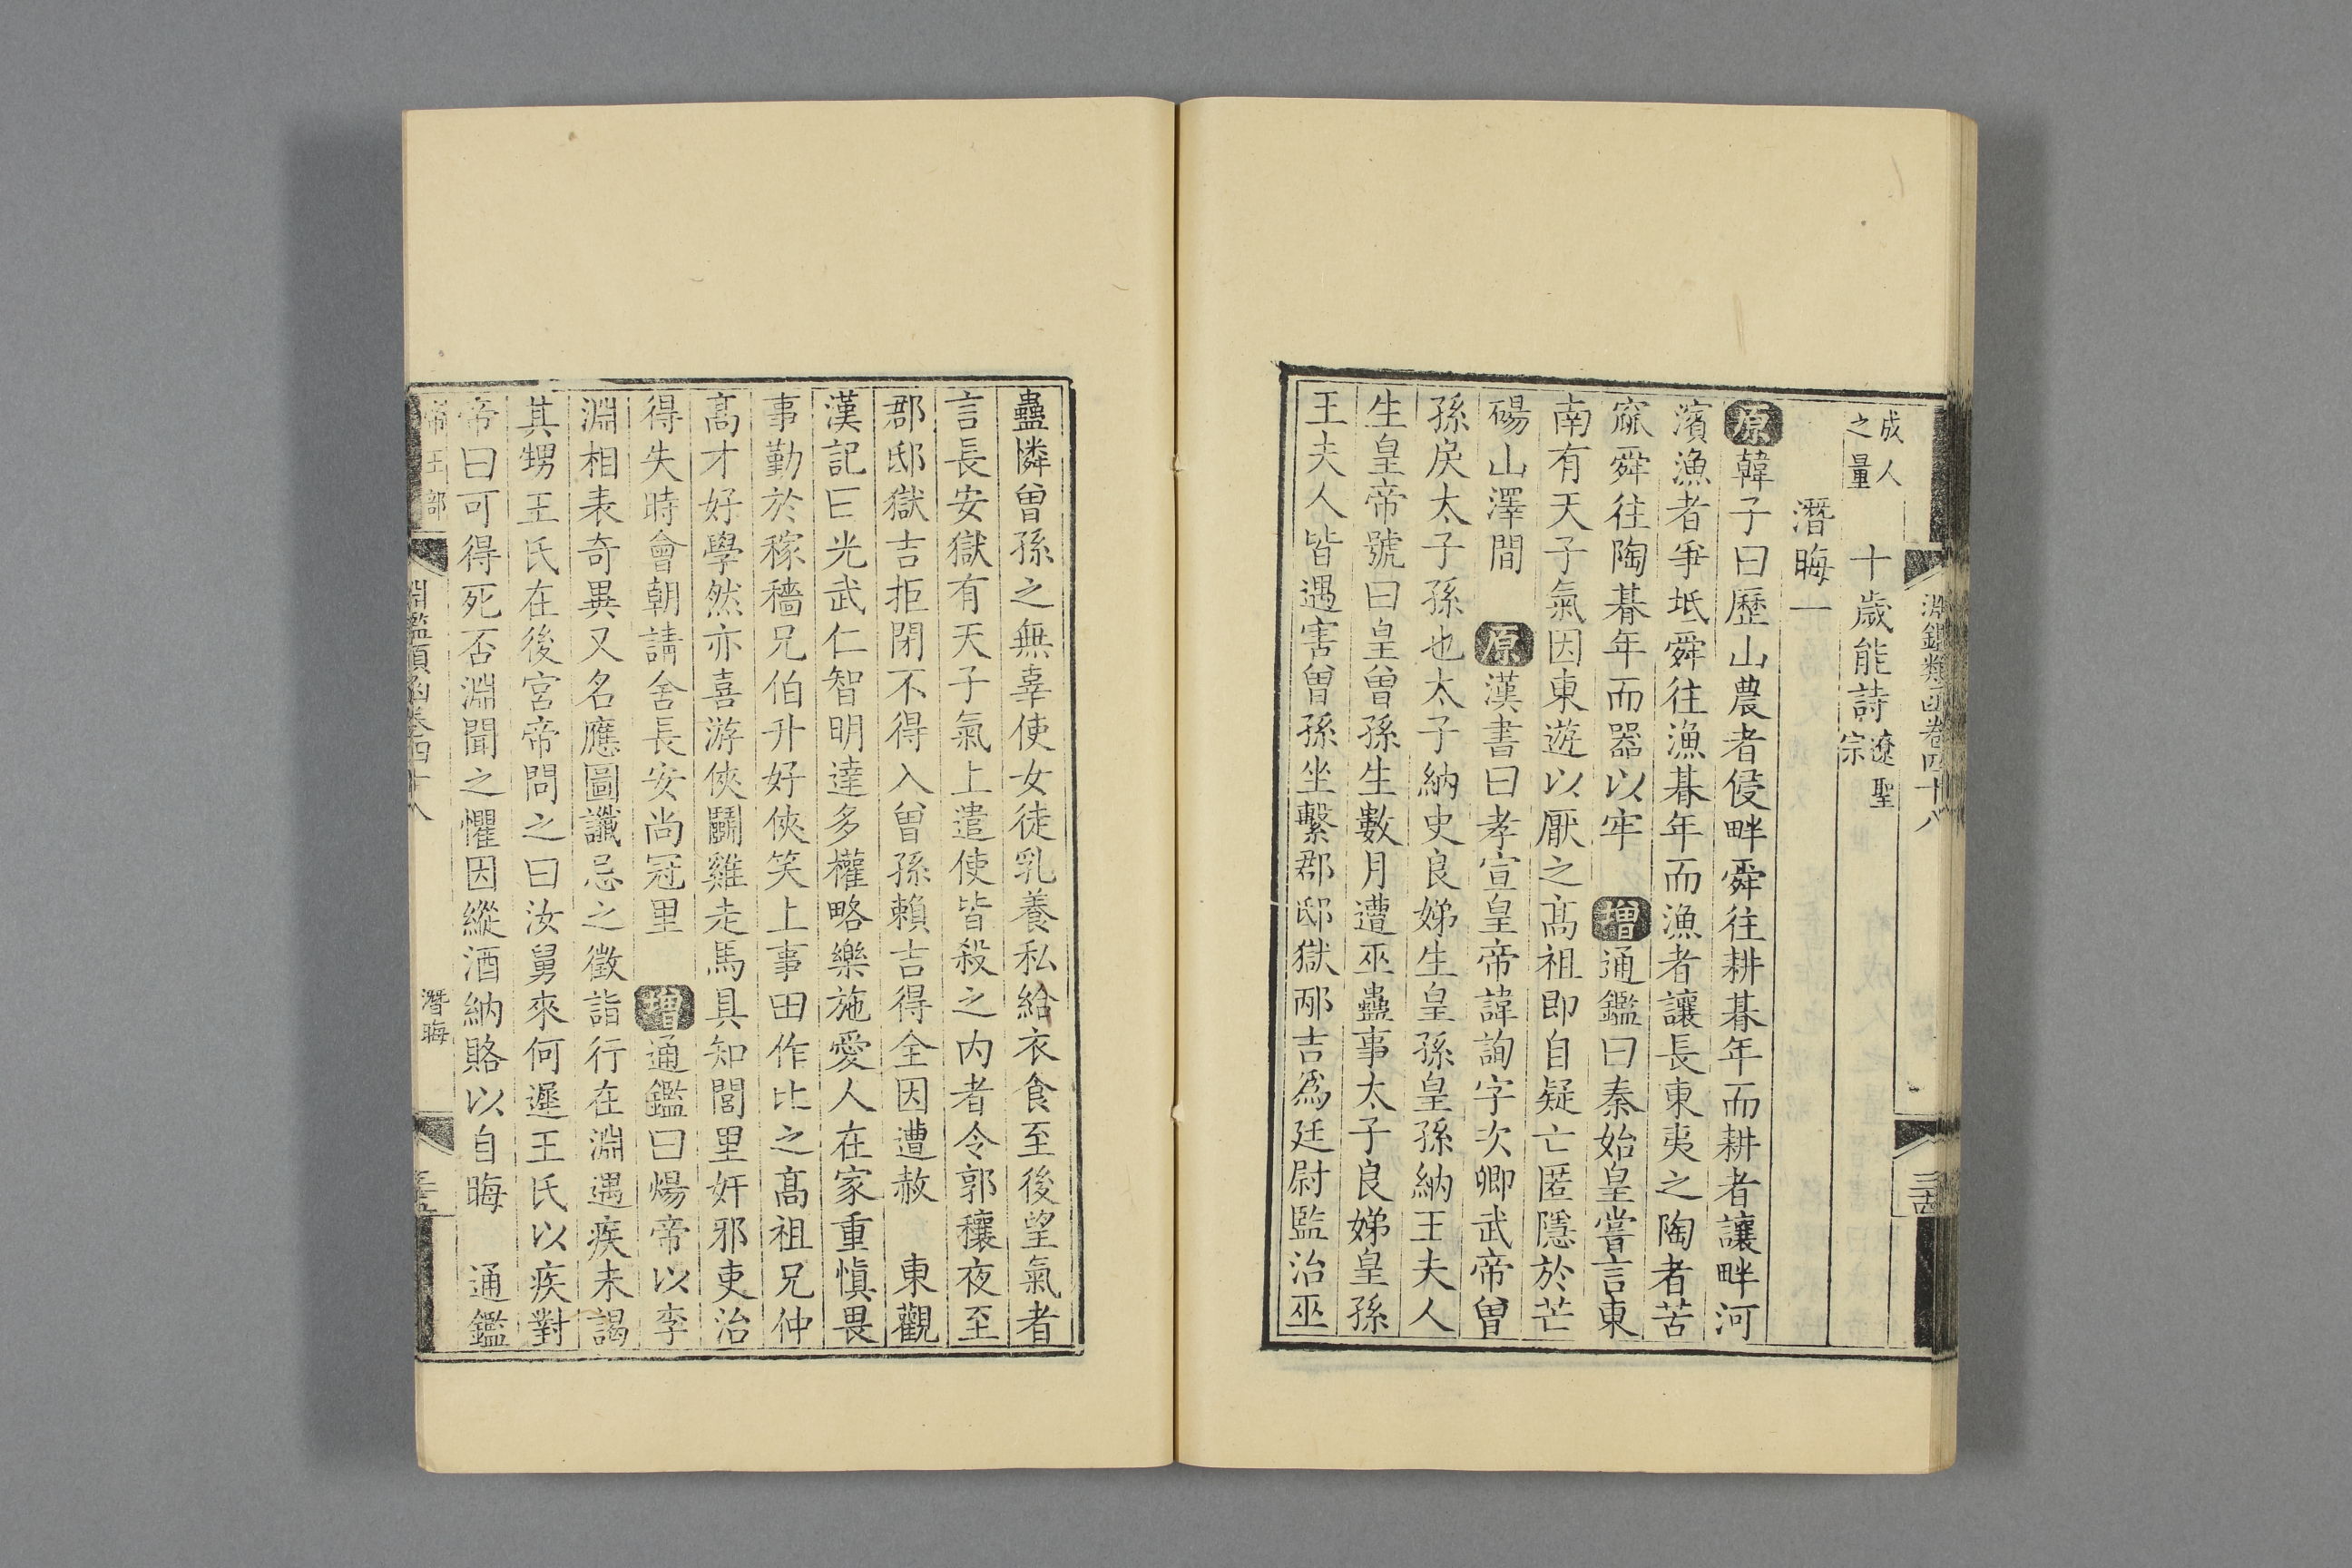 淵鑑類函卷四十八
成人
之量
十歲能詩遼聖
宗
潛晦一
原韓子曰歷山農者侵畔舜往耕朞年而耕者讓畔河
濱漁者爭坻舜往漁朞年而漁者讓長東夷之陶者苦
窳舜往陶朞年而器以牢 增通鑑曰秦始皇嘗言東
南有天子氣因東遊以厭之高祖即自疑亡匿隱於芒
碭山澤間 原漢書曰孝宣皇帝諱詢字次卿武帝曾
孫戾太子孫也太子納史良娣生皇孫皇孫納王夫人
生皇帝號曰皇曾孫生數月遭巫蠱事太子良娣皇孫
王夫人皆遇害曾孫坐繫郡邸獄邴吉爲廷尉監治巫
蠱憐曾孫之無辜使女徒乳養私給衣食至後望氣者
言長安獄有天子氣上遣使皆殺之内者令郭穰夜至
郡邸獄吉拒閉不得入曾孫賴吉得全因遭赦 東觀
漢記曰光武仁智明達多權略樂施愛人在家重慎畏
事勤於稼穡兄伯升好俠笑上事田作比之高祖兄仲
高才好學然亦喜游俠鬬雞走馬具知閭里奸邪吏治
得失時會朝請舍長安尚冠里 增通鑑曰煬帝以李
淵相表奇異又名應圖讖忌之徵詣行在淵遇疾未謁
其甥王氏在後宮帝問之曰汝舅來何遲王氏以疾對
帝曰可得死否淵聞之懼因縱酒納賂以自晦 通鑑
帝王部
淵鑑類函卷四十八
潛晦